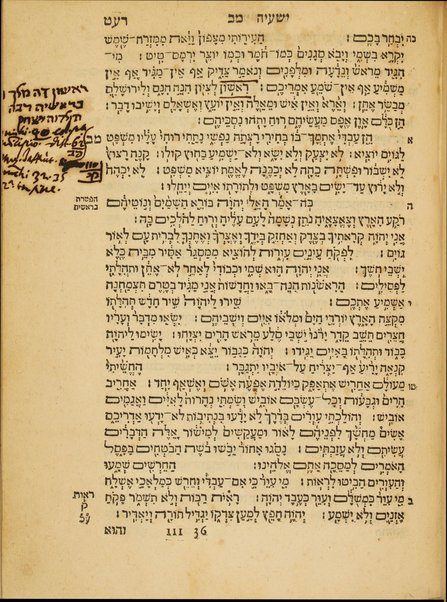 ישעיה מב רעט
ויבחר בכם׃ העירותי מצפון ויאת ממזרח־שמש
יקרא בשמי ויבא סגנים כמו־חמר וכמו יוצר ירמס־טיט׃ מי־
הגיד מראש ונדעה ומלפנים ונאמר צדיק אף אין־מגיד אף אין
משמיע אף אין־שמע אמריכם׃ ראשון לציון הנה הנם ולירושלם
מבשר אתן׃ וארא ואין איש ומאלה ואין יועץ ואשאלם וישיבו דבר׃
הן כלם און אפס מעשיהם רוח ותהו נסכיהם׃
הן עבדי אתמך־בו בחירי רצתה נפשי נתתי רוחי עליו משפט
לגוים יוציא׃ לא יצעק ולא ישא ולא־ישמיע בחוץ קולו׃ קנה רצוץ
לא ישבור ופשתה כהה לא יכבנה לאמת יוציא משפט׃ לא יכהה
ולא ירוץ עד־ישים בארץ משפט ולתורתו איים ייחלו׃
כה־אמר האל יהוה בורא השמים ונוטיהם
רקע הארץ וצאצאיה נתן נשמה לעם עליה ורוח להלכים בה׃
אני יהוה קראתיך בצדק ואחזק בידך ואצרך ואתנך לברית עם לאור
גוים׃ לפקח עינים עורות להוציא ממסגר אסיר מבית כלא
ישבי חשך׃ אני יהוה הוא שמי וכבודי לאחר לא־אתן ותהלתי
לפסילים׃ הראשנות הנה־באו וחדשות אני מגיד בטרם תצמחנה
אשמיע אתכם׃ שירו ליהוה שיר חדש תהלתו
מקצה הארץ יורדי הים ומלאו איים וישביהם׃ ישאו מדבר ועריו
חצרים תשב קדר ירנו ישבי סלע מראש הרים יצוחו׃ ישימו ליהוה
כבוד ותהלתו באיים יגידו׃ יהוה כגבור יצא כאיש מלחמות יעיר
קנאה יריע אף־יצריח על־איביו יתגבר׃ החשיתי
מעולם אחריש אתאפק כיולדה אפעה אשם ואשאף יחד׃ אחריב
הרים וגבעות וכל־עשבם אוביש ושמתי נהרות לאיים ואגמים
אוביש׃ והולכתי עורים בדרך לא ידעו בנתיבות לא־ידעו אדריכם
אשים מחשך לפניהם לאור ומעקשים למישור אלה הדברים
עשיתם ולא עזבתים׃ נסגו אחור יבשו בשת הבטחים בפסל
האמרים למסכה אתם אלהינו׃ החרשים שמעו
והעורים הביטו לראות׃ מי עור כי אם־עבדי וחרש כמלאכי אשלח
מי עור כמשלם ועור כעבד יהוה׃ ראית רבות ולא תשמר פקח
אזנים ולא ישמע׃ יהוה חפץ למען צדקו יגדיל תורה ויאדיר׃
III 36 והוא
כה
א
הפטרת
בראשית
ה
י
טו
כ
ראות
ק